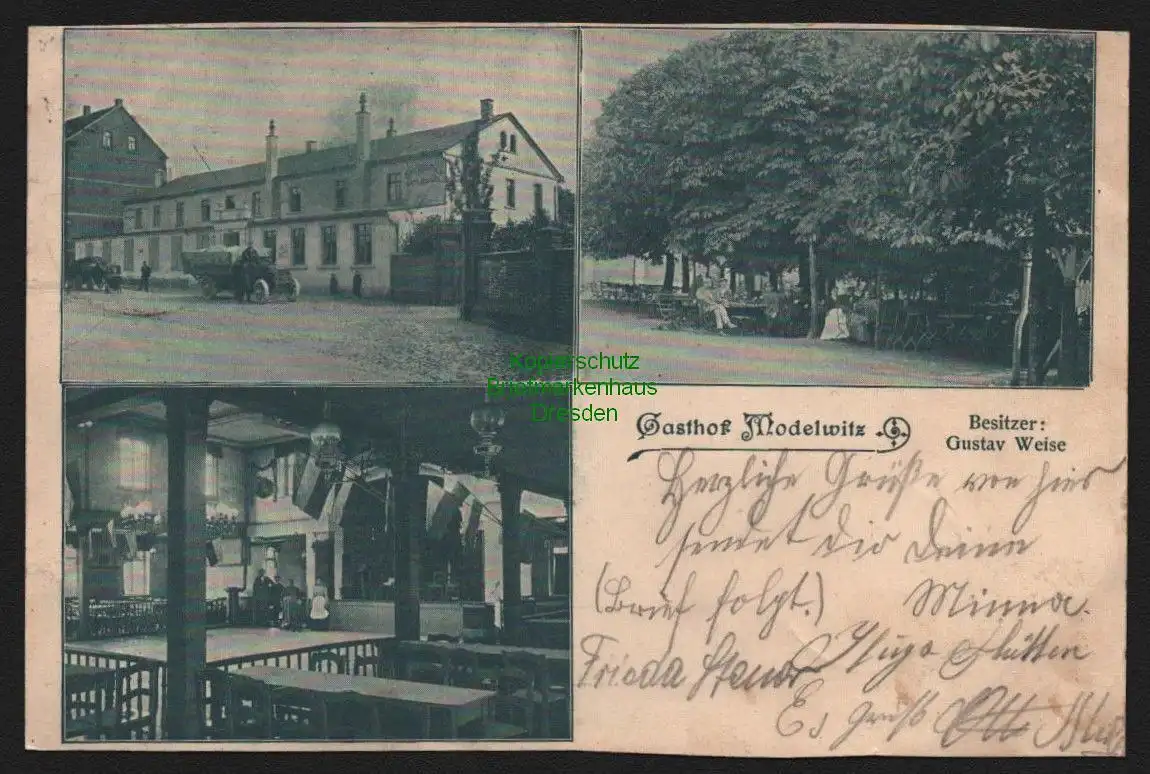 Kopierschutz
Briefmarkenhaus
Dresden
Gasthof Modelwitz
Besitzer:
Gustav Weise
Herzliche Grüße von hier
sendet dir Deine
(Brief folgt.) Minna.
Frieda Hugo
Es grüßt Otto